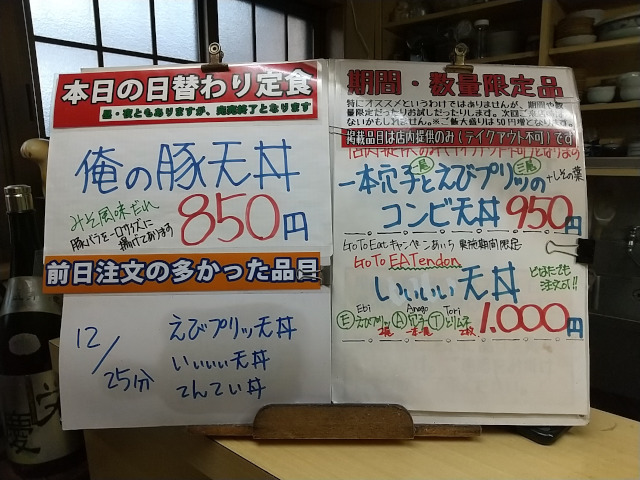 本日の日替わり定食
品・玄ともありますが、完売終了となります
俺の豚天丼
みそ風味だれ
豚バラを一口サイズに
揚げてあります
850円
前日注文の多かった品目
12/25分
えびプリッ天丼
いいいい天丼
てんてい丼
期間・数量限定品
特にオススメというわけではありませんが、期間や数
量限定だったりお試しだったりします。次回ご来店時には
ないかもしれません。※ご飯大盛りは50円増となります
掲載品目は店内提供のみ(テイクアウト不可)です
一本 二尾
一本穴子とえびプリッの
+しその葉
コンビ天丼 950円
GoTo Eatキャンペーンあいち 実施期間限定
GoTo EATendon
いいいい天丼
どなたでも
注文可!!
Ebi Anago Tori
Ⓔえびプリッ Ⓐ穴子 Ⓣとりムネ
2尾 一本 2枚
1,000円